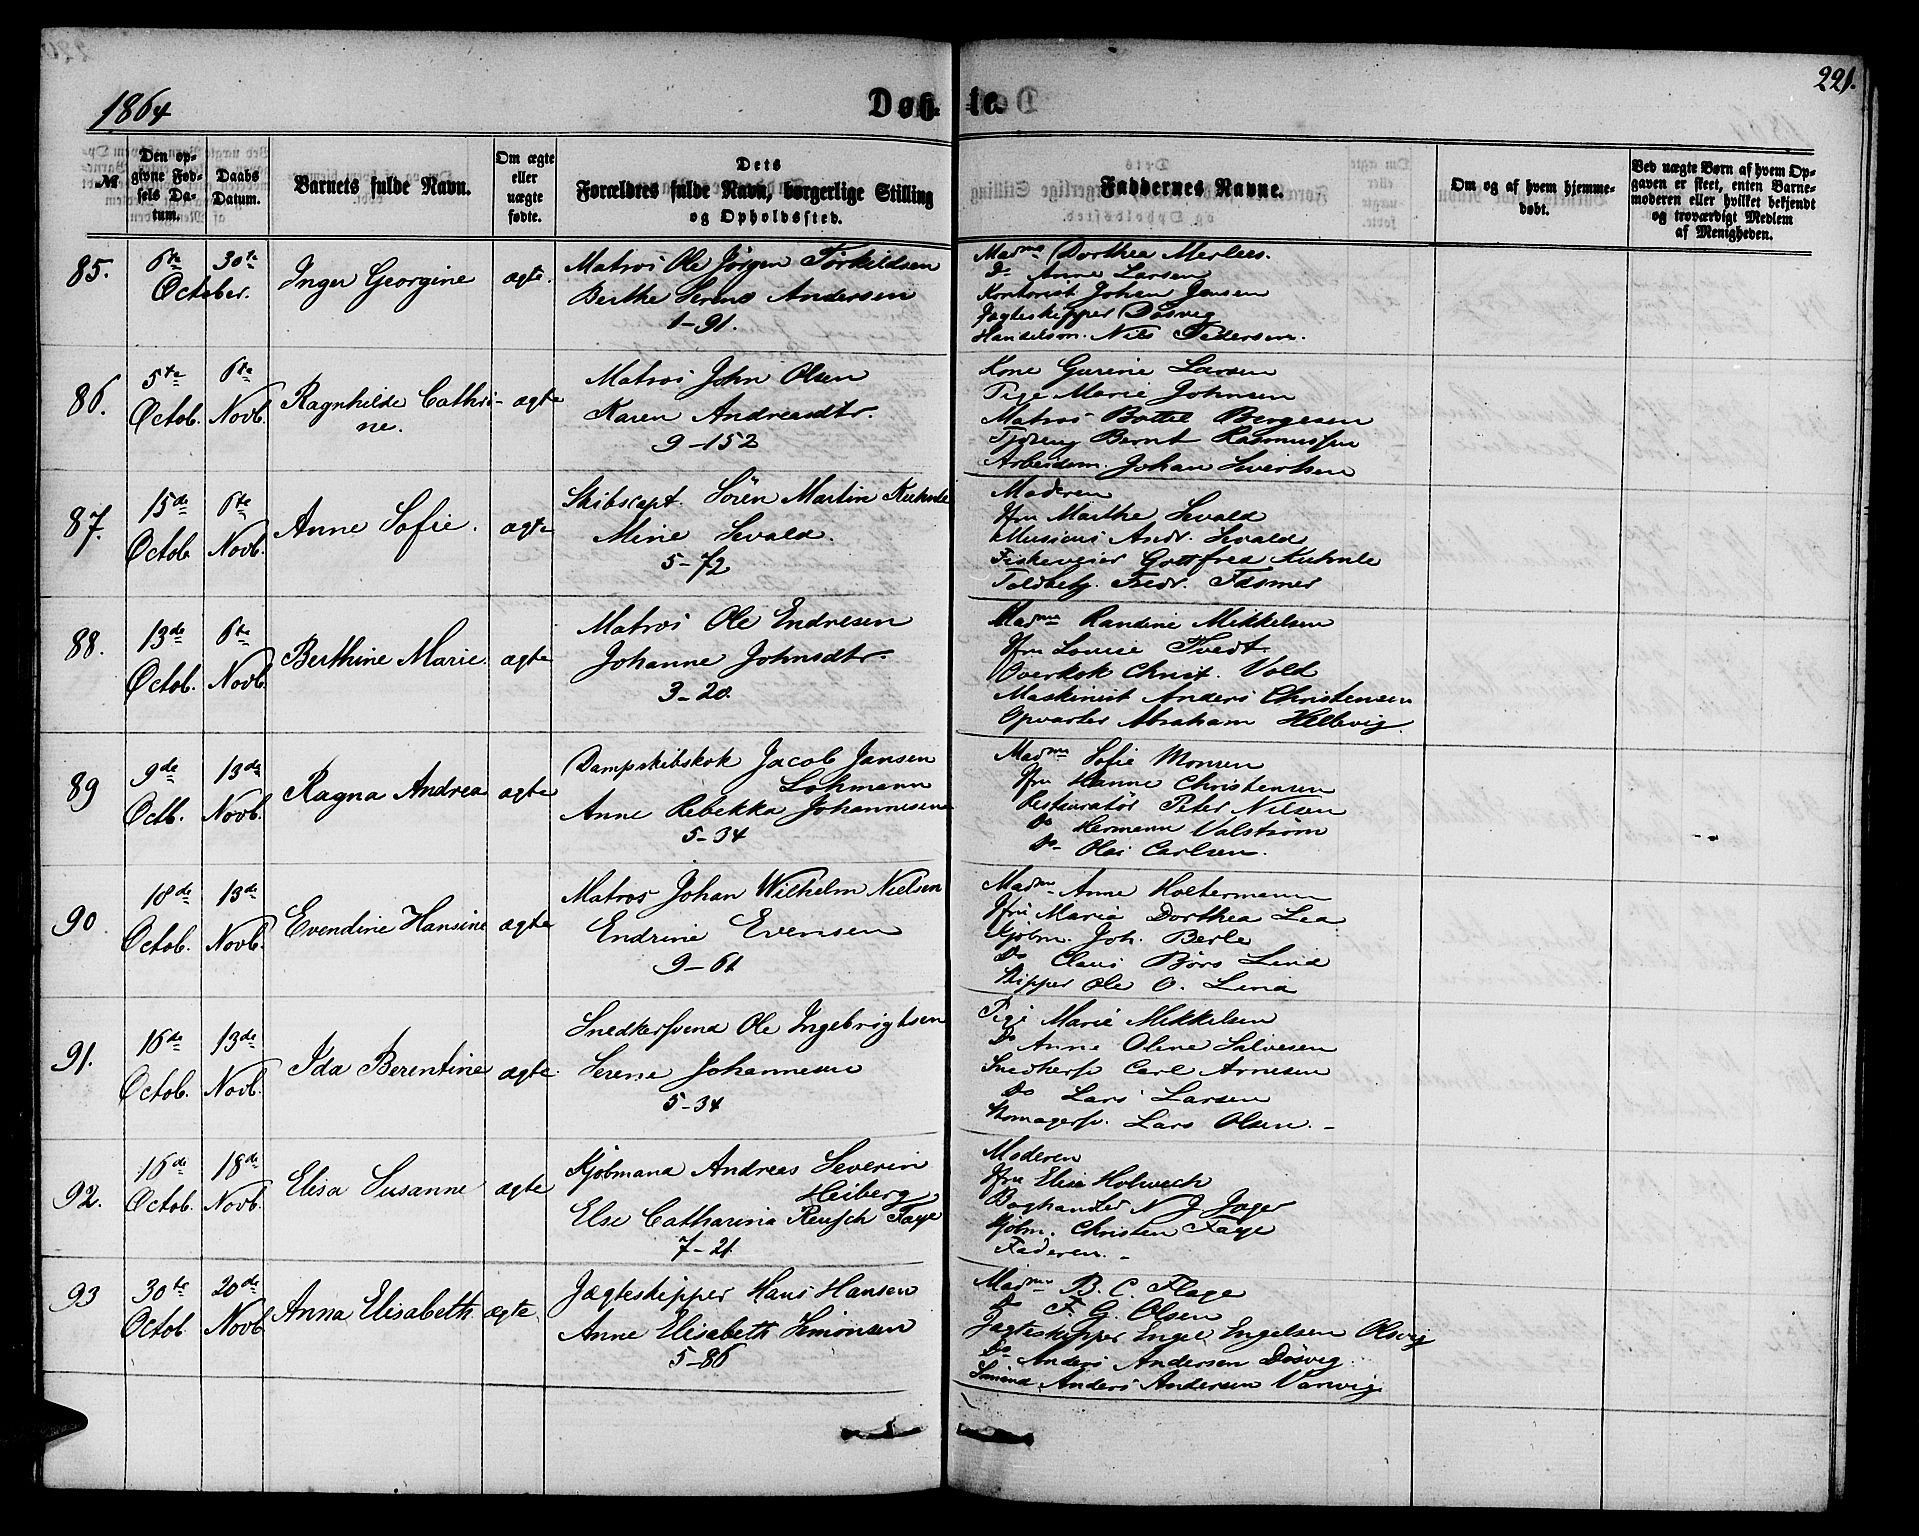 1864
Døb- te.
221.
№
Den opgivne Fødsels Datum.
Daabs Datum.
Barnets fulde Navn.
Om ægte eller uægte fødte.
Dets Forældres fulde Navn, borgerlige Stilling og Opholdssted.
Faddernes Navne.
Om og af hvem hjemmedøbt.
Ved uægte Børn af hvem Opgaven er skeet, enten Barnemoderen eller hvilket bekjendt og troværdigt Medlem af Menigheden.
85.
6te 30te
October.
Inger Georgine
ægte.
Matros Ole Jörgen Törkildsen
Berthe Serine Andersen
1-91.
Madme Dorthea Merlees.
Do Anne Larsen
Kontorist Johan Jansen
Jagteskipper Dösvig
Handelsm. Nils Pedersen.
86.
5te Octob.
6te Novb.
Ragnhilde Cathri-
ne.
ægte
Matros John Olsen
Karen Andreasdtr.
9-152
Kone Gurine Larsen
Pige Marie Johnsen
Matros Bottel Bergesen
Bernt Rasmussen
Arbeidsm. Johan Sivertsen
87.
15de Octob.
6te Novb.
Anne Sofie.
ægte
Skibscapt. Sören Martin Kuhnle
Mine Sevald.
5-72
Moderen
Jfru Marthe Sevald
Musicus Andr. Sevald
Fiskeveier Gottfred Kuhnle
Toldbetj. Fredr. Fasmer
88.
13de Octob.
6te Novb.
Berthine Marie.
ægte
Matros Ole Endresen
Johanne Johnsdtr.
3-20.
Madme Randine Mikkelsen
Jfru Louise Tvedt.
Overkok Christ. Vold
Maskinist Anders Christensen
Opvarter Abraham Hellevig.
89
9de Octb.
13de Novb.
Ragna Andrea
ægte
Dampskibskok Jacob Jansen
Lohmann
Anne Rebekka Johannesen
5-34
Madme Sofie Monsen
Jfru Hanne Christensen
Restauratör Peter Nilsen
Do Hermann Valström
Do Olai Carlsen.
90.
18de Octob.
13de Novb.
Evendine Hansine
ægte
Matros Johan Wilhelm Nielsen
Endrine Evensen
9-61
Madme Anne Holtermann
Jfru Maria Dorthea Lea
Kjöbm. Joh. Berle
Do Claus Börs Lind
Skipper Ole O. Lind
91.
16de Octob.
13de Novb.
Ida Berentine
ægte
Snedkersvend Ole Ingebrigtsen
Serene Johannesen
5-34
Pige Marie Mikkelsen
Do Anne Oline Salvesen
Snedkersv. Carl Arnesen
Do Lars Larsen
Skomagersv. Lars Olsen.
92.
16de Octob.
18de Novb.
Elisa Susanne
ægte
Kjöbmand Andreas Severin
Heiberg
Else Catharina Reusch Faye
7-21
Moderen
Jfru Elise Holwech
Boghandler N J Jæger
Kjöbm. Christen Faye
Faderen.
93
30te Octob.
20de Novb.
Anna Elisabeth.
ægte.
Jægteskipper Hans Hansen
Anne Elisabeth Simonsen
5-86
Madme B. C. Flage
Do F. G. Olsen
Jagteskipper Engel Engelsen Olsvig
Do Anders Andersen Dösvig.
Anders Andersen Varvig.